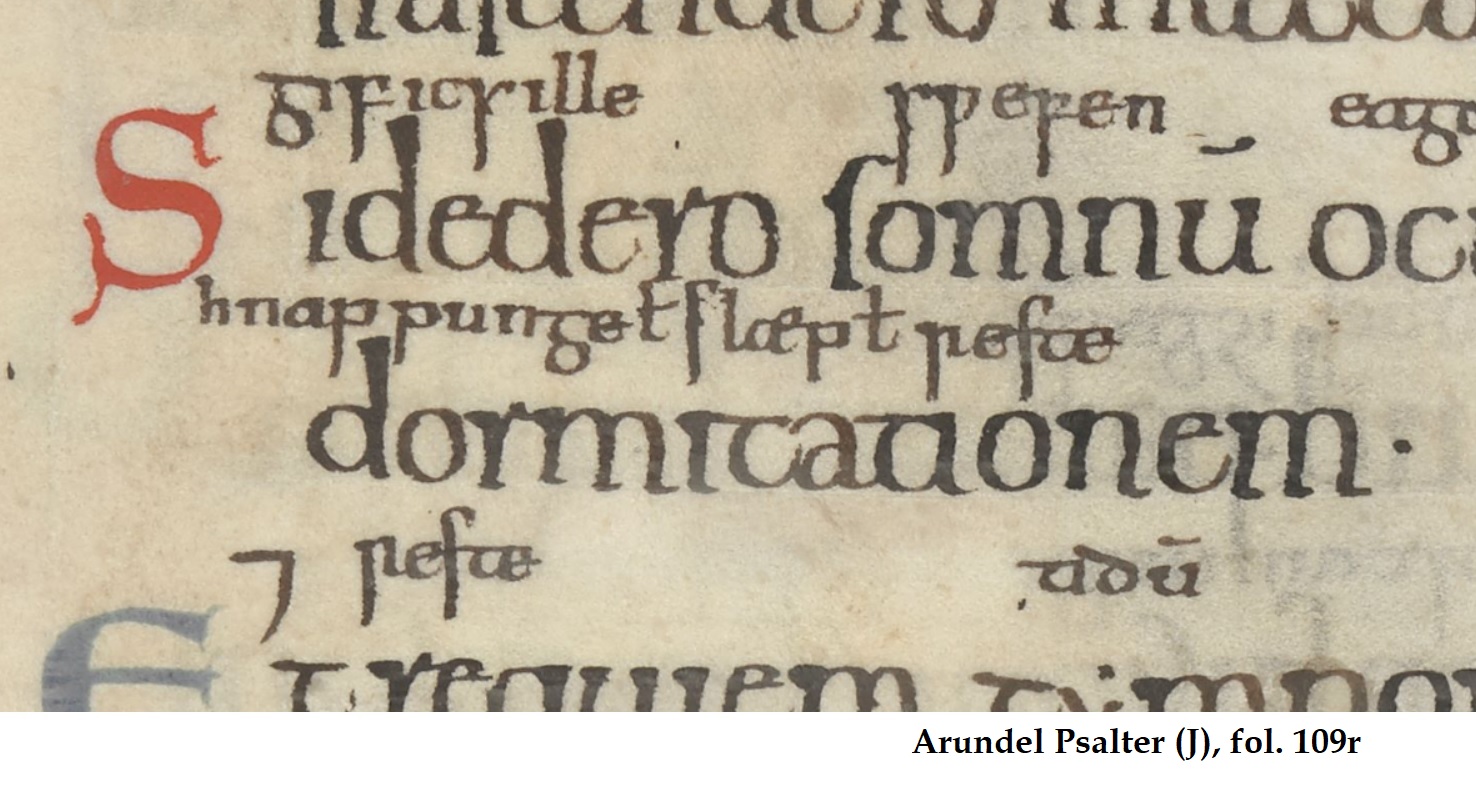 gif ic sille sƿefen eag
Si dedero somnū oc
hnappunge ł slæp ł reste
dormitationem·
⁊ reste tidū
Et requiem tẏmpor
Arundel Psalter (J), fol. 109r